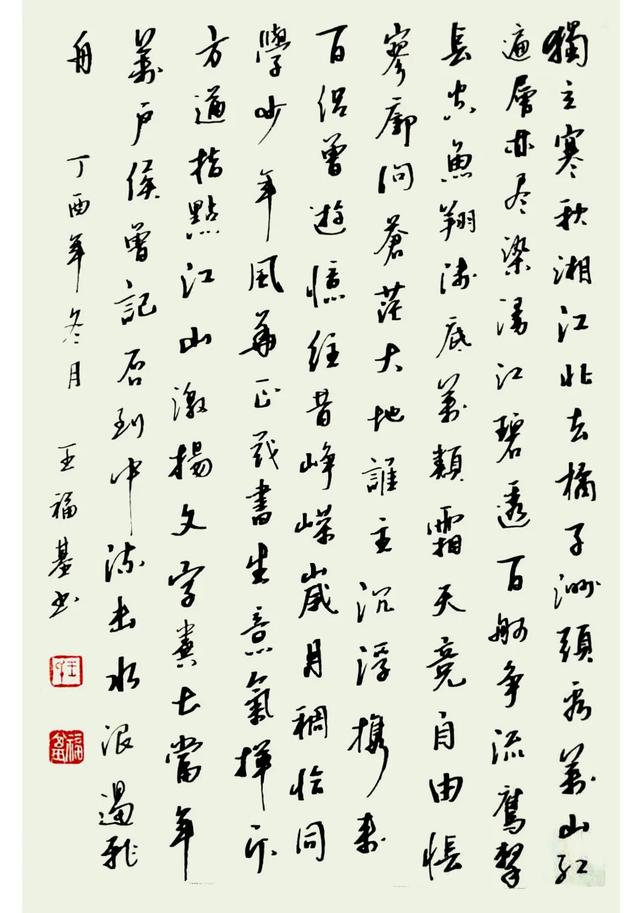 獨立寒秋湘江北去橘子洲頭看萬山紅
遍層林尽染漫江碧透百舸争流鷹擊
長空魚翔淺底萬類霜天竞自由悵
寥廓问蒼茫大地誰主沉浮携来
百侣曾遊憶往昔崢嶸歲月稠恰同
學少年風華正茂書生意氣揮斥
方遒指點江山激揚文字糞土當年
萬户侯曾記否到中流击水浪遏飛
舟 丁酉年冬月 王福基书
王
福基